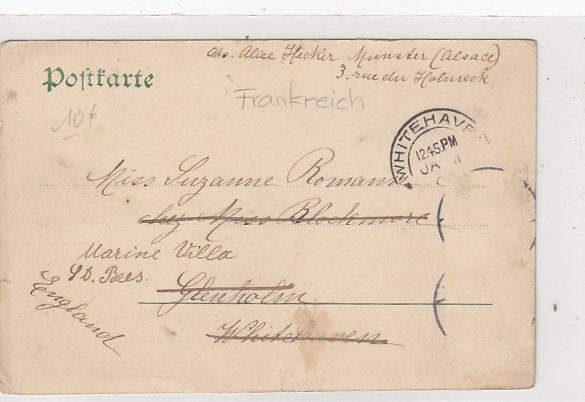 Abs. Alice Hecker Munster (Alsace)
3. rue du Hohneck
Postkarte
Frankreich
10 €
WHITEHAVE
12.45.PM
JA 4
Miss Suzanne Romann
chez Miss Blockmore
Marine Villa
S.D. Bees.
Glenholm
England
Whitehaven